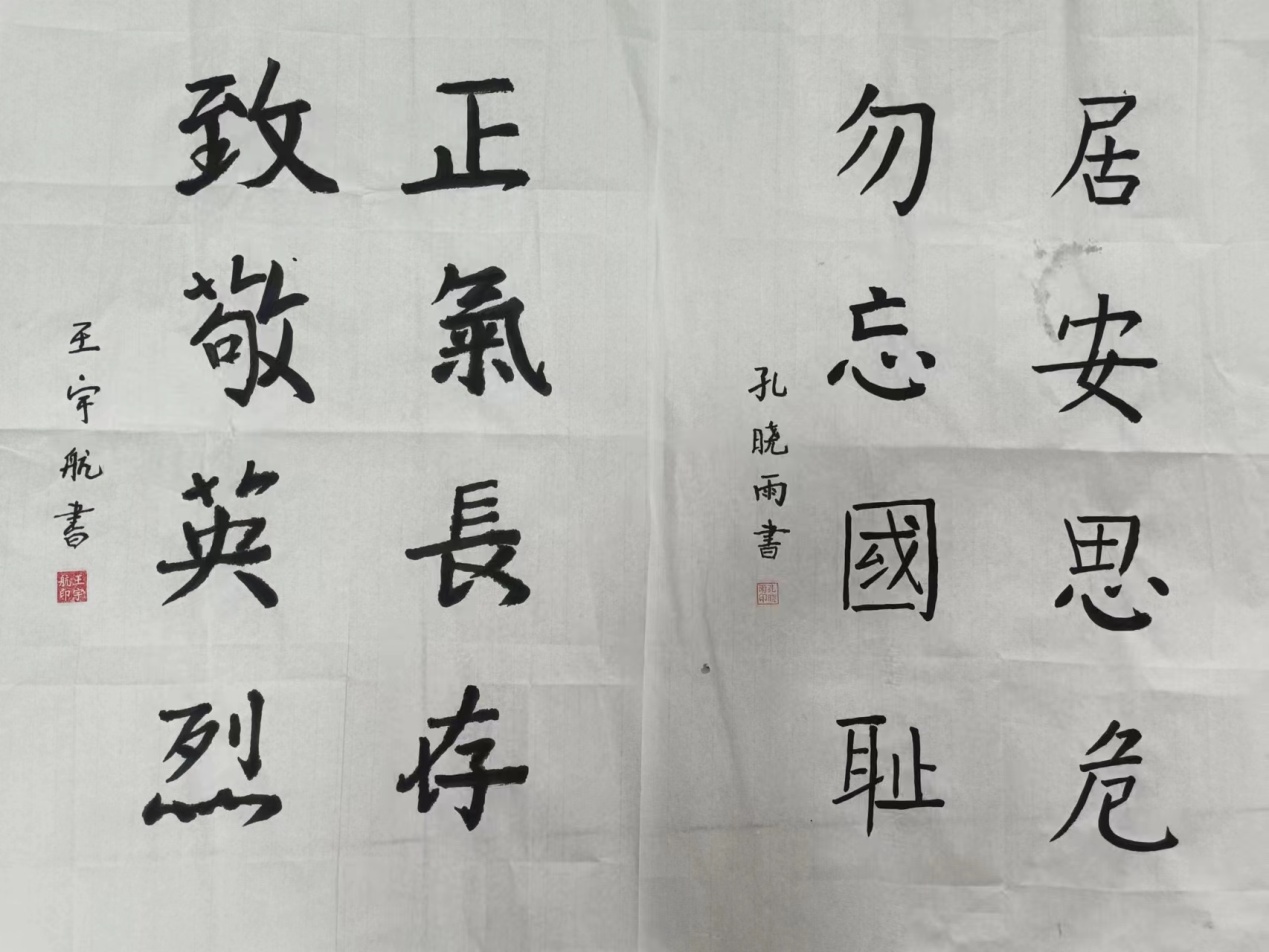 居安思危
勿忘國耻
孔晓雨書
正氣長存
致敬英烈
王宇航書
王宇航印